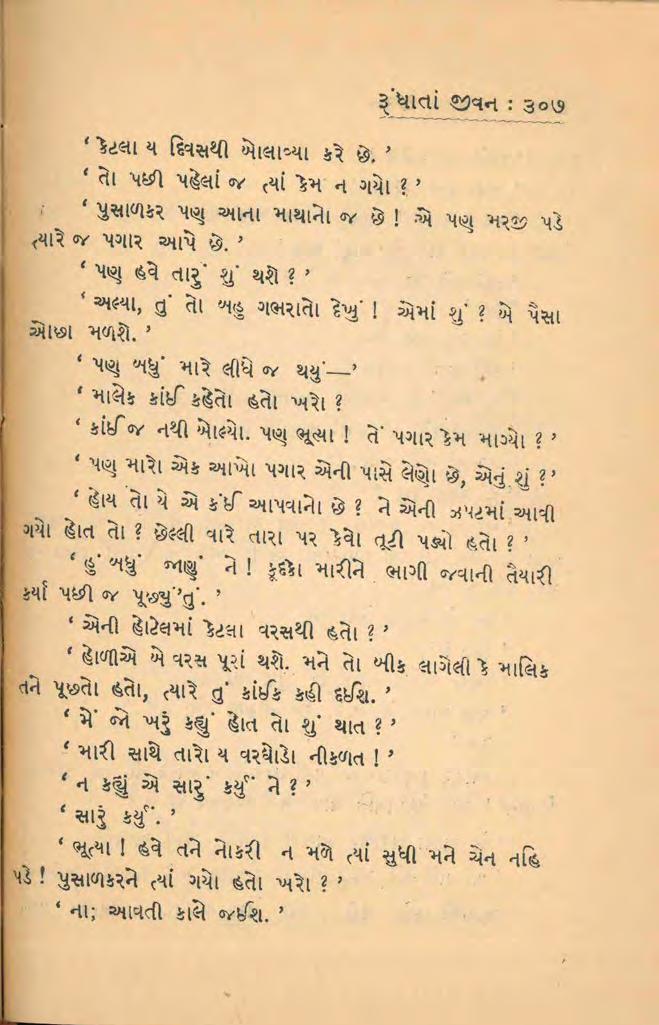 રૂંધાતાં જીવન : ૩૦૭
‘ કેટલા ય દિવસથી બોલાવ્યા કરે છે. ’
‘ તો પછી પહેલાં જ ત્યાં કેમ ન ગયો ? ’
‘ પુસાળકર પણ આના માથાનો જ છે ! એ પણ મરજી પડે
ત્યારે જ પગાર આપે છે. ’
‘ પણ હવે તારું શું થશે ? ’
‘ અલ્યા, તું તો બહુ ગભરાતો દેખું ! એમાં શું ? બે પૈસા
ઓછા મળશે. ’
‘ પણ બધું મારે લીધે જ થયું—’
‘ માલેક કાંઈ કહેતો હતો ખરો ?
‘ કાંઈ જ નથી બોલ્યો. પણ ભૂત્યા ! તેં પગાર કેમ માગ્યો ? ’
‘ પણ મારો એક આખો પગાર એની પાસે લેણો છે, એનું શું ? ’
‘ હોય તો યે એ કંઈ આપવાનો છે ? ને એની ઝપટમાં આવી
ગયો હોત તો ? છેલ્લી વારે તારા પર કેવો તૂટી પડ્યો હતો ? ’
‘ હું બધું જાણું ને ! કૂદકો મારીને ભાગી જવાની તૈયારી
કર્યા પછી જ પૂછ્યું’તું. ’
‘ એની હોટેલમાં કેટલા વરસથી હતો ? ’
‘ હોળીએ બે વરસ પૂરાં થશે. મને તો બીક લાગેલી કે માલિક
તને પૂછતો હતો, ત્યારે તું કાંઈક કહી દઈશ. ’
‘ મેં જો ખરું કહ્યું હોત તો શું થાત ? ’
‘ મારી સાથે તારો ય વરઘોડો નીકળત ! ’
‘ ન કહ્યું એ સારું કર્યું ને ? ’
‘ સારું કર્યું. ’
‘ ભૂત્યા ! હવે તને નોકરી ન મળે ત્યાં સુધી મને ચેન નહિ
પડે ! પુસાળકરને ત્યાં ગયો હતો ખરો ? ’
‘ ના; આવતી કાલે જઈશ. ’